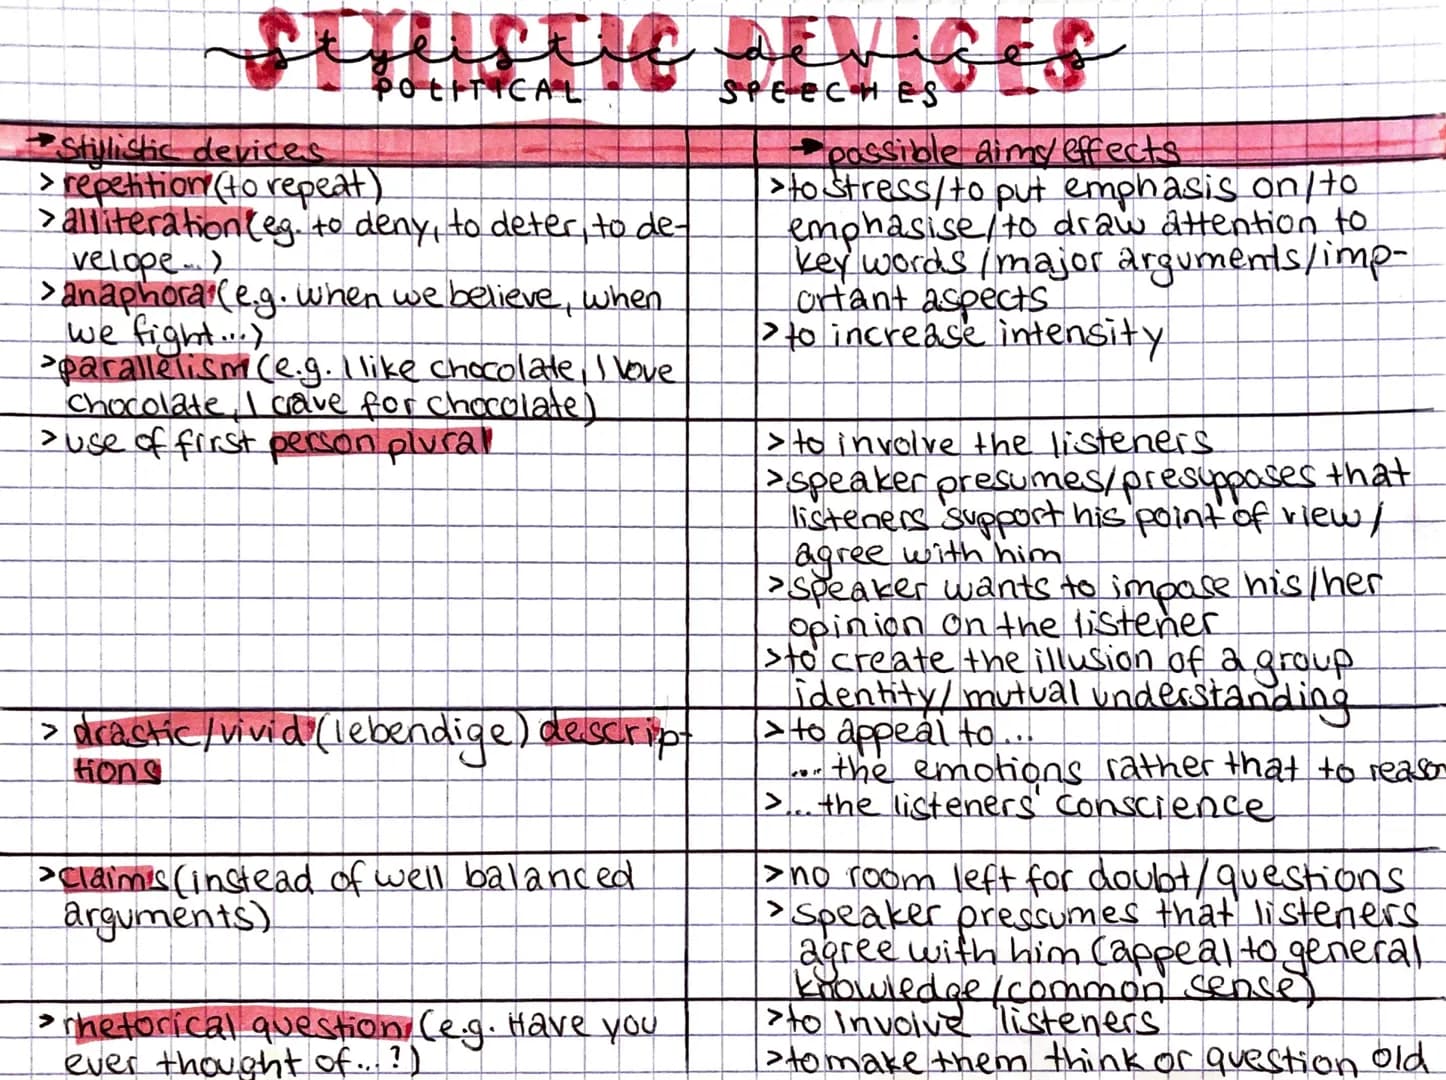 STYLISTIC DEVICES
stylistic devices
POLITICAL SPEECHES
→ stylistic devices
> repetition (to repeat)
> alliteration (eg. to deny, to deter, to de-
velope...)
> anaphora (e.g. when we believe, when
we fight...)
> parallelism (e.g. I like chocolate, I love
chocolate, I crave for chocolate)
→ possible aims/effects
> to stress/to put emphasis on/to
emphasise/to draw attention to
key words/major arguments/imp-
ortant aspects
> to increase intensity
> use of first person plural
> to involve the listeners
> speaker presumes/presupposes that
listeners support his point of view/
agree with him
> speaker wants to impose his/her
opinion on the listener
> to create the illusion of a group
identity/mutual understanding
> drastic/vivid (lebendige) descrip-
tions
> to appeal to...
... the emotions rather that to reason
> ... the listeners' conscience
> claims (instead of well balanced
arguments)
> no room left for doubt/questions
> speaker pressumes that listeners
agree with him (appeal to general
knowledge/common sense)
> rhetorical question (e.g. Have you
ever thought of...?)
> to involve listeners
> to make them think or question old